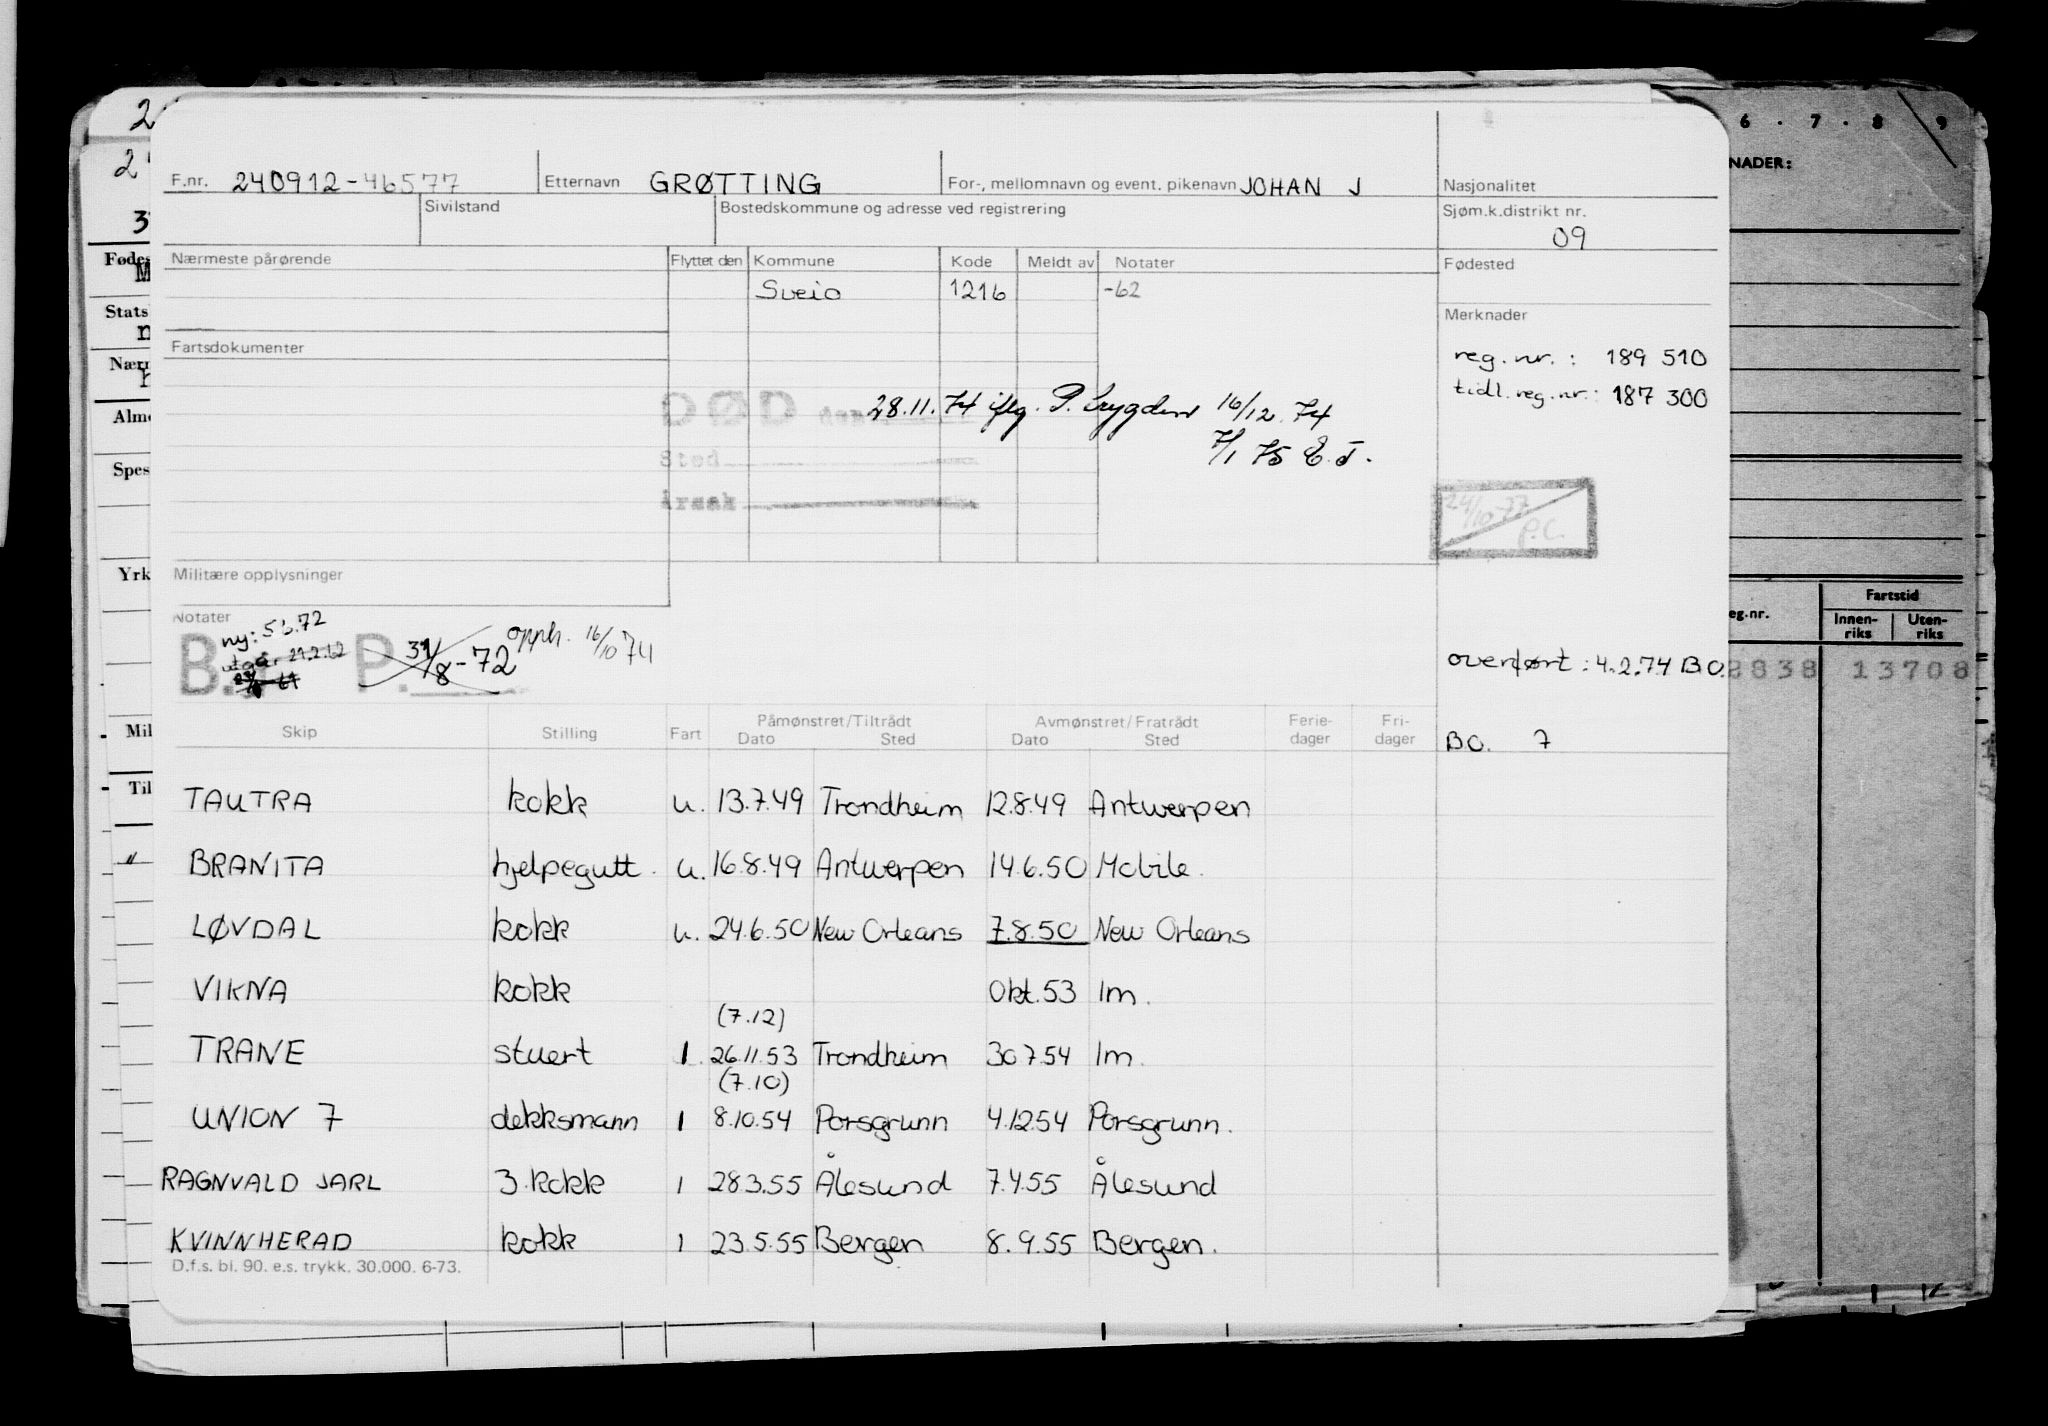 F.nr. 240912-46577 Etternavn GRØTTING For-, mellomnavn og event. pikenavn JOHAN J Nasjonalitet
Sivilstand Bostedskommune og adresse ved registrering Sjøm.k.distrikt nr.
09
Nærmeste pårørende Flyttet den Kommune Kode Meldt av Notater Fødested
Sveio 1216 -62
Merknader
Fartsdokumenter
reg.nr.: 189 510
tidl.reg.nr.: 187 300
DØD den 28.11.74 iflg. P. 16/12.74
Sted 7/1 75 E.T.
Årsak
24/10-77 P.C.
Militære opplysninger
Notater
B. ny: 5.6.72
utgår 21.2.62
P. 31/8-72 opph. 16/10 74
overført: 4.2.74 B.O.
Skip Stilling Fart Påmønstret/Tiltrådt Dato Sted Avmønstret/Fratrådt Dato Sted Ferie-dager Fri-dager
B.O. 7
TAUTRA kokk u. 13.7.49 Trondheim 12.8.49 Antwerpen
BRANITA hjelpegutt. u. 16.8.49 Antwerpen 14.6.50 Mobile.
LØVDAL kokk u. 24.6.50 New Orleans 7.8.50 New Orleans
VIKNA kokk Okt.53 Im.
(7.12)
TRANE stuert 1. 26.11.53 Trondheim 30.7.54 Im.
(7.10)
UNION 7 dekksmann 1 8.10.54 Porsgrunn 4.12.54 Porsgrunn.
RAGNVALD JARL 3. kokk 1 28.3.55 Ålesund 7.4.55 Ålesund
KVINNHERAD kokk 1 23.5.55 Bergen 8.9.55 Bergen.
D.f.s. bl. 90. e.s. trykk. 30.000. 6-73.
6 . 7 . 8 9
NADER:
eg.nr. Fartstid
Innen-riks Uten-riks
8838 13708
2
2
3
Fødes
Stats
Nærn
Alm
Spes
Yrk
Mil
Til